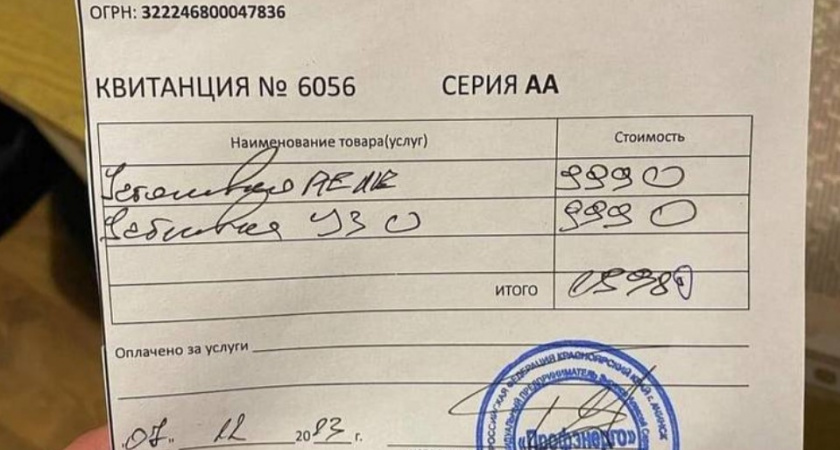 ОГРН: 322246800047836
КВИТАНЦИЯ № 6056 СЕРИЯ АА
Наименование товара(услуг) Стоимость
9990
УЗО 9990
ИТОГО
Оплачено за услуги
"07" 12 2023 г.
РОССИЙСКАЯ ФЕДЕРАЦИЯ КРАСНОЯРСКИЙ КРАЙ г. АЧИНСК
ПРЕДПРИНИМАТЕЛЬ
«Профэнерго»